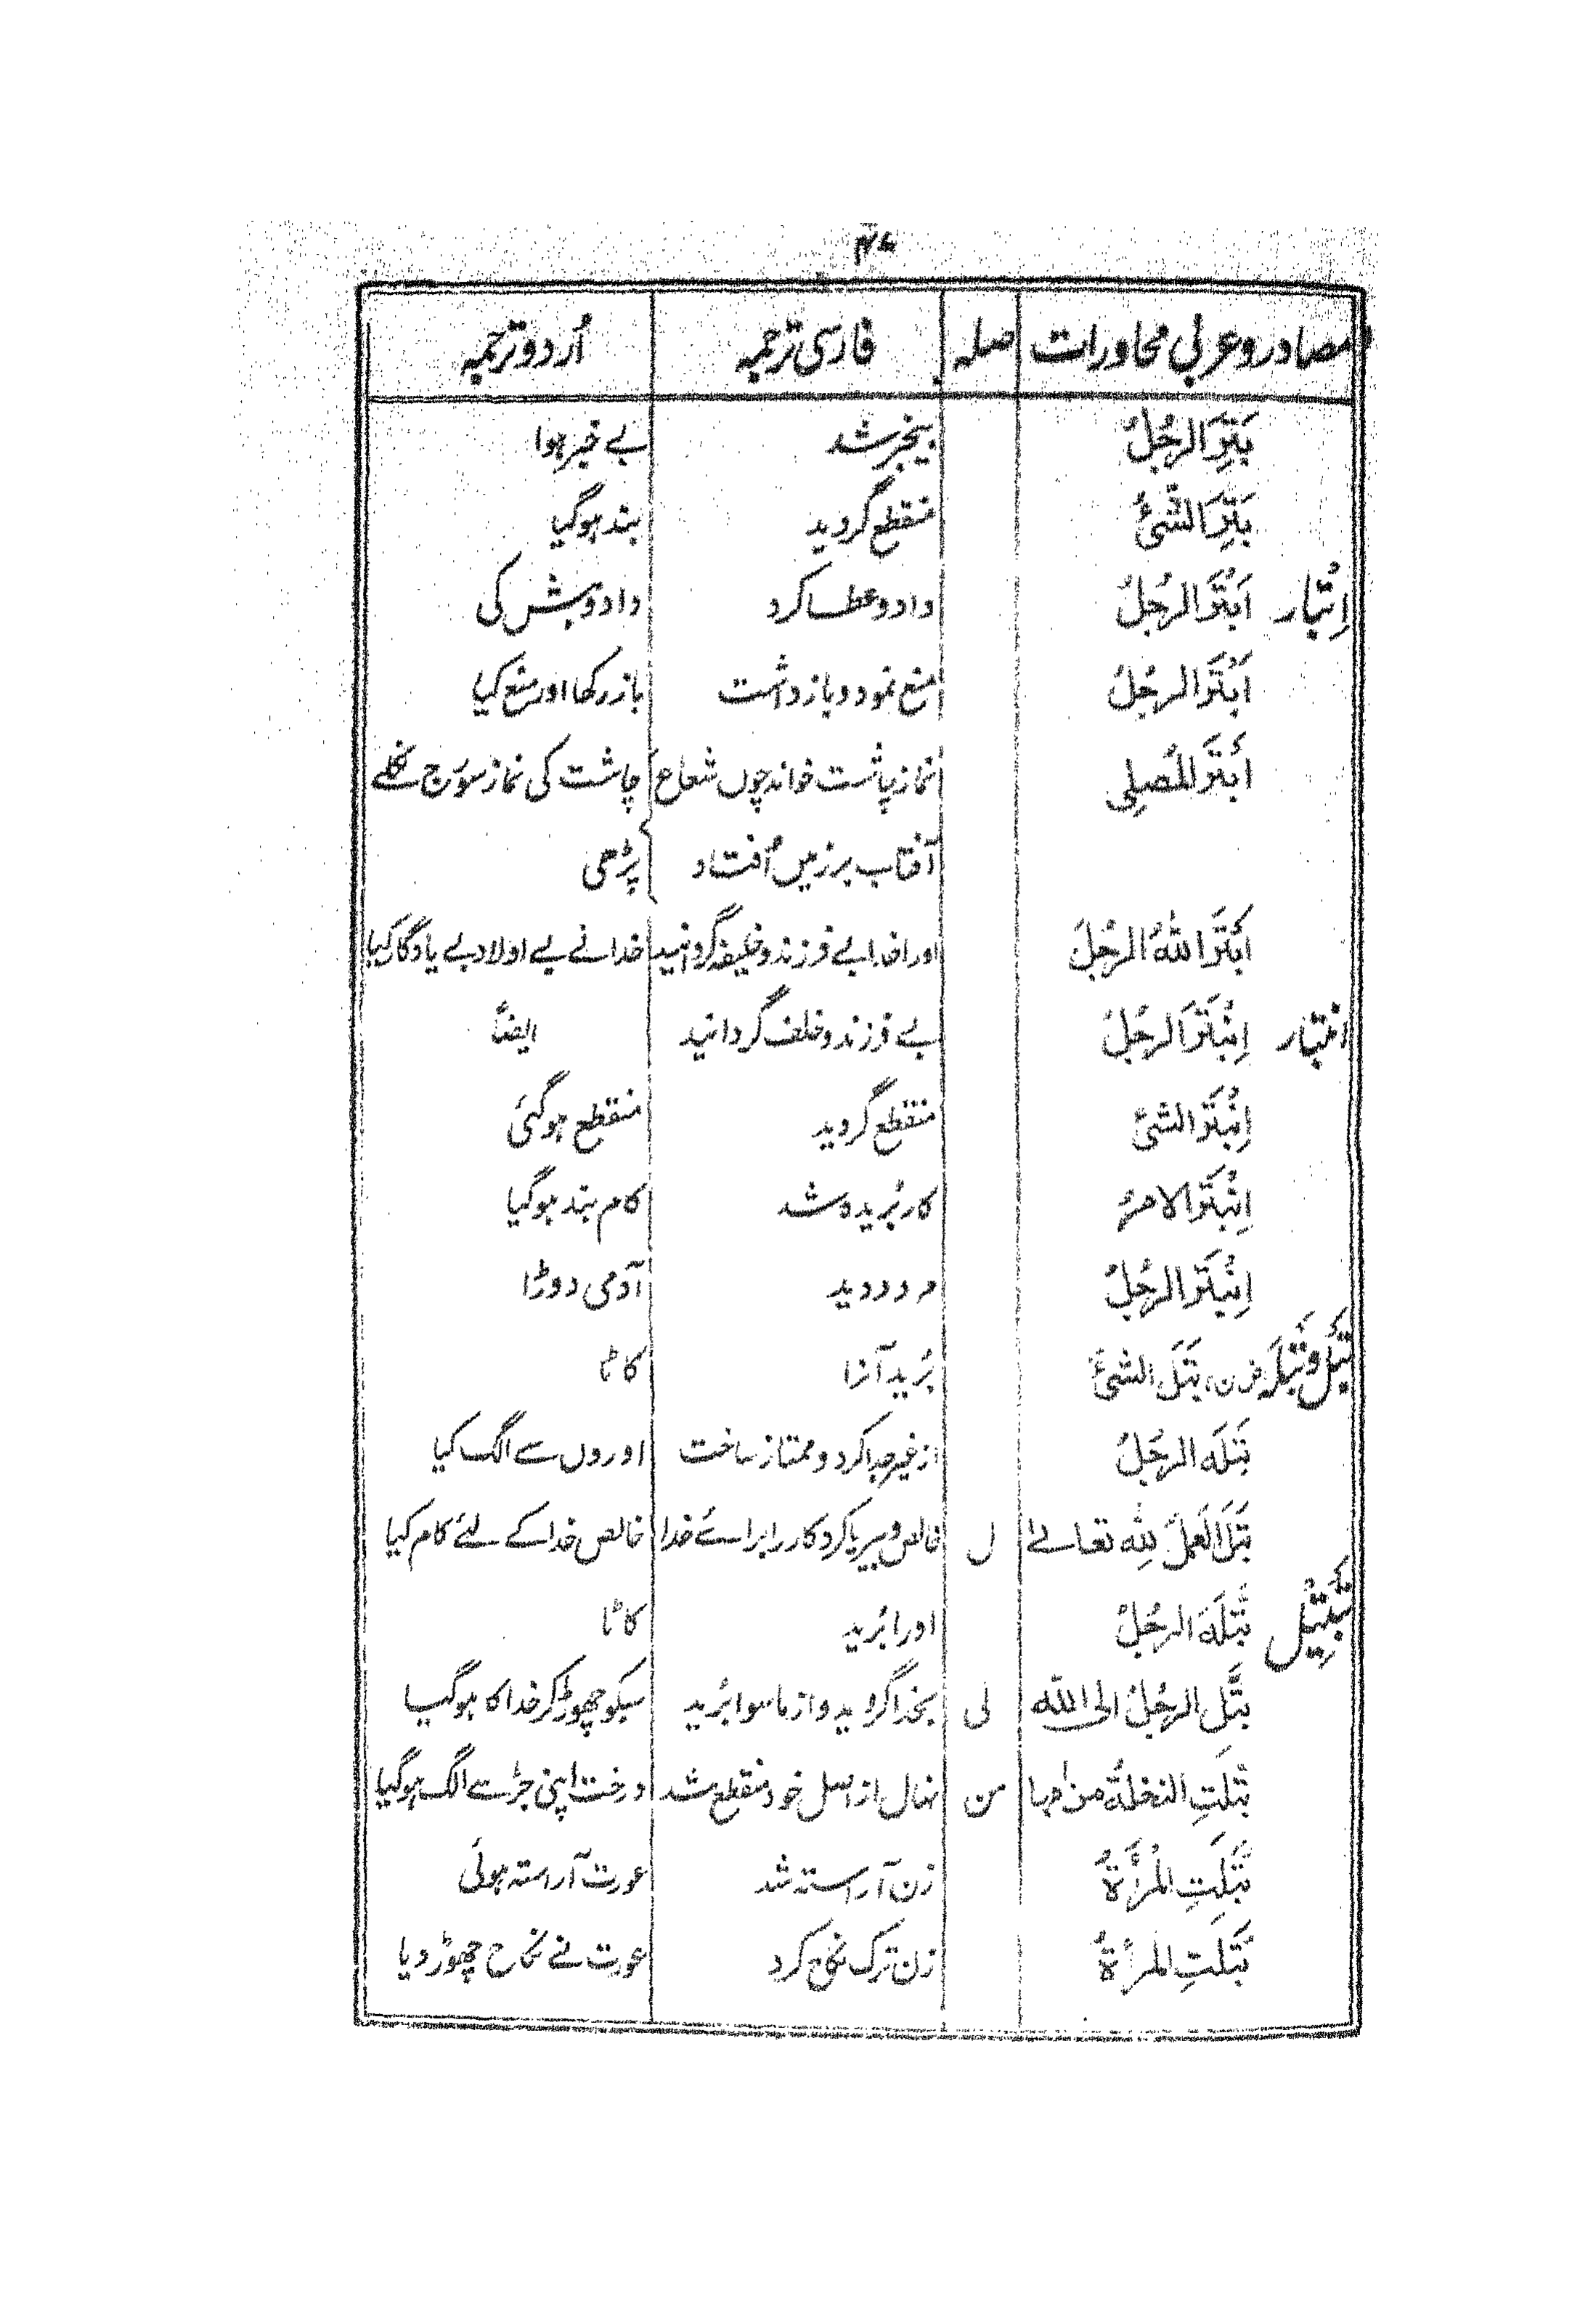 مصادر و عربی محاورات صلہ فارسی ترجمہ اُردو ترجمہ
بَتِرَ الرجُلُ بیخبر شد بے خبر ہوا
بَتِرَ الشّیُٔ منقطع گردید بند ہوگیا
اِبْتَار اَبْتَرَ الرجُلُ داد و عطا کرد داد و بخشش کی
اَبْتَرَ الرجُلُ منع نمود و باز داشت باز رکھا اور منع کیا
اَبْتَرَ المُصلِی نماز چاشت خواند چوں شعاع چاشت کی نماز سورج نکلے
آفتاب بر زمیں اُفتاد پڑھی
اَبْتَرَ اللهُ الرجُلَ اورا خدا بے فرزند و خلیفہ گردانید خدا نے بے اولاد بے یادگار کیا
انبتار اِنْبَتَرَ الرجُلُ بے فرزند و خلف گردانید ایضاً
اِنْبَتَرَ الشیُٔ منقطع گردید منقطع ہوگئی
اِنْبَتَرَ الامرُ کار بُریدہ شد کام بند ہوگیا
اِنْبَتَرَ الرجُلُ مرد دوید آدمی دوڑا
بَتْل وبَتْلَۃ ض ن، بَتَلَ الشیَٔ بُرید آنرا کاٹا
بَتَلَہ الرجُلُ از غیر جدا کرد و ممتاز ساخت اوروں سے الگ کیا
بَتَلَ العَمَلَ لِلّٰہ تعالےٰ ل خالص و بیریا کرد کار را برائے خدا خالص خدا کے لئے کام کیا
تَبْتِیْل بَتَّلَہَ الرجُلُ اورا بُرید کاٹا
بَتَّلَ الرجُلُ الی اللہ لی بخدا گردید و از ماسوا بُرید سبکو چھوڑ کر خدا کا ہوگیا
بَتَّلَتِ النخلۃُ من امہا من نہال از اصل خود منقطع شد درخت اپنی جڑ سے الگ ہوگیا
بَتَّلَتِ المْرأَۃُ زن آراستہ شد عورت آراستہ ہوئی
بَتَّلَتِ المرأۃُ زن ترک نکاح کرد عورت نے نکاح چھوڑ دیا